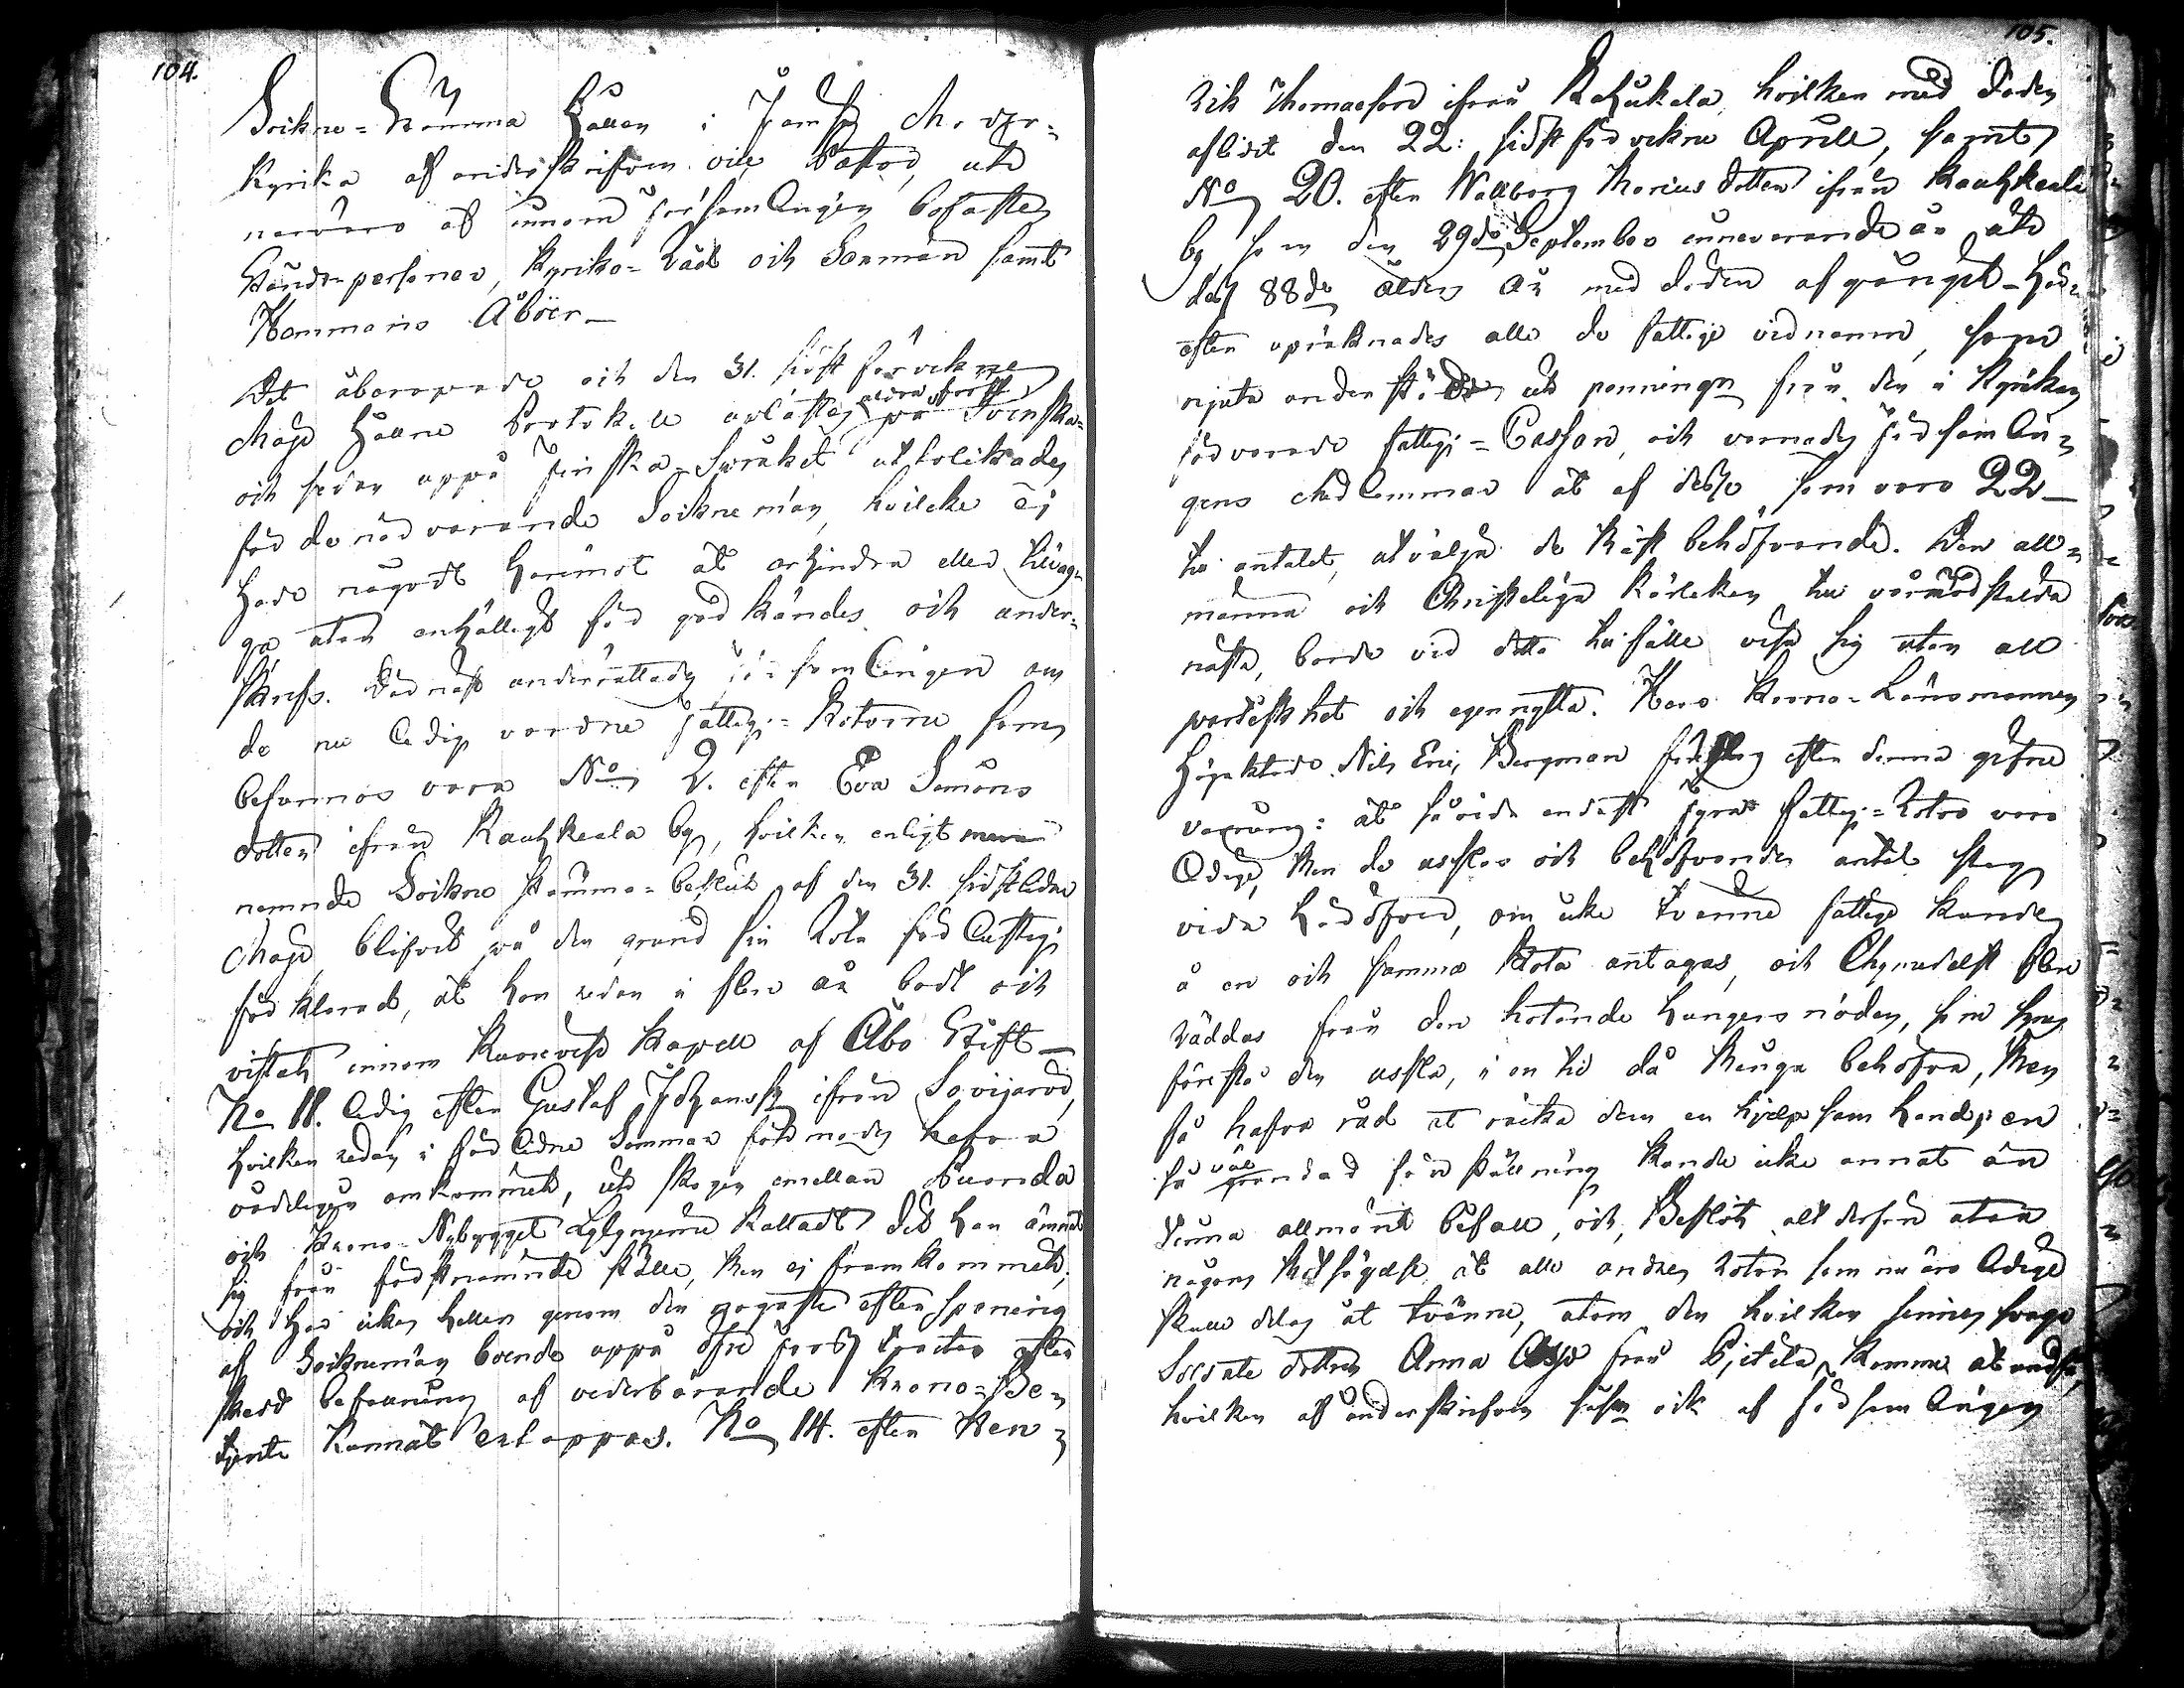 104.
Sockne-Stämma hållen i Jämsä Moder-
kyrka af underskrifven vice Pastor, uti
närvaro af innom församlingen bosatte
Stånds-personer, Kyrko-Råd och Sexmän samt
Hemmans Åboer—
Det åberopade och den 31. sidst förvekne
Maji hållne Protokoll uplästes aldraförst på Svenska
och sedan uppå Finska Språket uttolkades
för de närvarande Socknemän, hvilcke ej
hade något häremot at erhindra eller tilläg-
ga utan enhälligt för godkändes och under-
skrefs. Därnäst underrättades församlingen om
de nu ledig vordne fattig-Rotorne som
befunnos vara No 2. efter Eva Simons
dotter ifrån Rautzkeala by, hvilken enligt
nemnde Sockne stämmo-beslut af den 31. sidstledne
Maji, blifvit på den grund sin Rota förlustig
förklarad, at hon redan i flere år bodt och
vistats innom Kuorevesi Kapell af Åbo Stift—
No 11. ledig efter Gustaf Johansson ifrån
hvilken redan i förledne Sommar förmodes hafva
vådeligen omkommit, uti skogen emellan Puonda
och Krono-Nybygget kalladt, det han ämnat
sig från förstnämnde ställe, men ej framkommit,
och har icke heller genom den nogaste efterspaning
af Socknemän boende uppå öfre trakter efter
skedd befallning af vederbörande Krono-Be-
tjente kunnat ertappas. No 14. efter Hen-
105.
rik Thomasson ifrån Rekukala, hvilken med döden
aflidit den 22: sidst förvekne Aprill, samt
No 20. efter Wallborg Marcus dotter ifrån Rautzkeala
by, som den 29de September innevarande år uti
dess 88de ålders år med döden afgångit— Här-
efter upräknades alle de fattige vid namn, som
njuta understöd uti penningar från den i Kyrkan
förvarade fattig-Cassan, och varnades församlin-
gens Medlemmar at af desse som voro 22
till antalet, utvälja de mäst behöfvande. Den all-
männa och Christeliga kärleken till vår nödstälda
nästa, borde vid detta tilfälle visa sig utan all
partiskhet och egennytta. Herr Krono-Länsmannen
Högaktade Nils Eric Bergman föreslog efter denna gifne
varning: at såvida endast fyra fattig-Rotor voro
lediga, men de usslas och behöfvandes antal steg
vida häröfver, om icke tvänne fattige kunde
å en och samma Rota antagas, och lkymedelst flere
räddas från den hotande hungersnöden, som synes
förestå den ussla, i en tid då många behöfva, men
få hafva råd at räcka dem en hjelpsam hand; en
så väl grundad föreställning kunde icke annat än
vinna allmänt bifall, och Beslöts alt derföre utan
någons motsägelse at alle andre Rotor som nu äro lediga
skulle delas åt tvänne, utom den hvilken sinnes svage
Soldate dottren Anna Asp från Pjetilä kommer at undfå,
hvilken af underskrifven såsom ock af församlingen